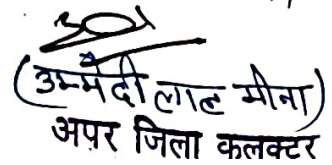 (उम्मेदी लाल मीना)
अपर जिला कलक्टर